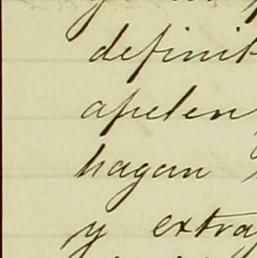 definit
apelen
hagan
y extra